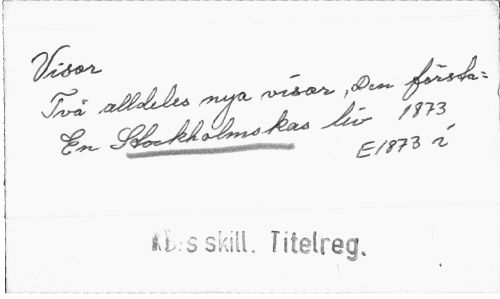 Visor
Två alldeles nya visor, Den första:
En Stockholmskas liv 1873
E1873 i
KB:s skill. Titelreg.